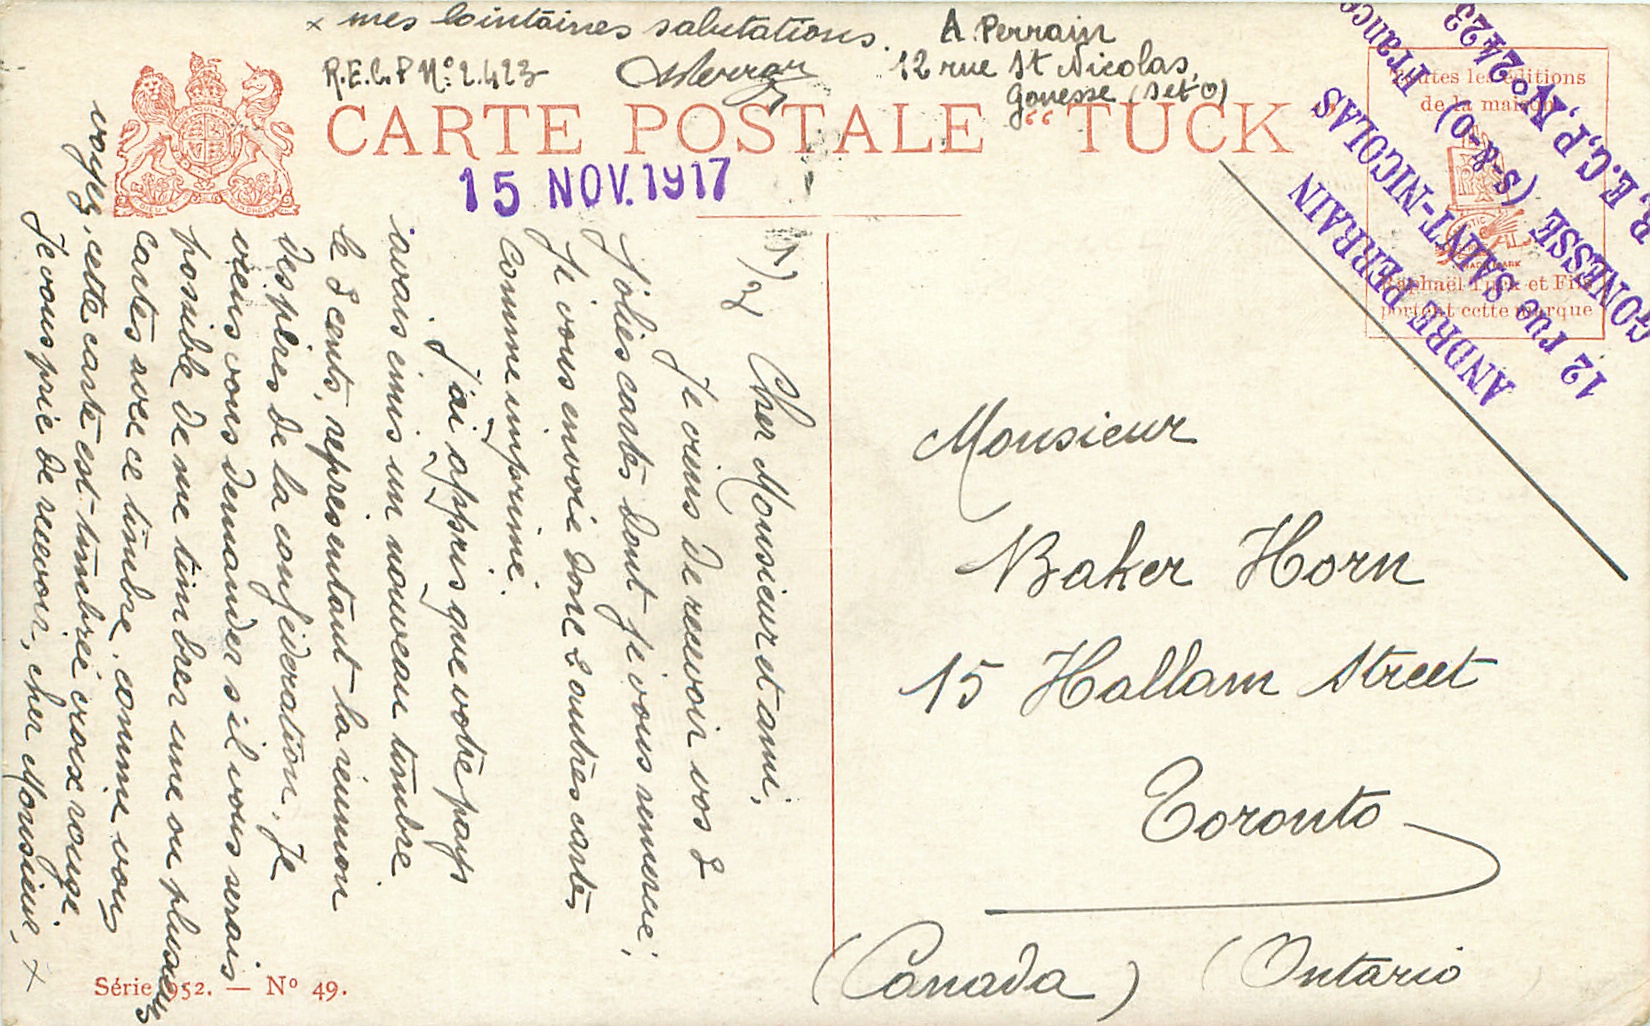 x mes lointaines salutations.
A Perrain
12 rue St Nicolas,
Gonesse (Set O)
R.E.C.P Nº 2.423
CARTE POSTALE “ TUCK
15 NOV. 1917
ANDRE PERRAIN
12 rue SAINT-NICOLAS
GONESSE (S-&-O)
France
R, E. C, P, Nº 2423
Toutes les éditions
de la maison
Raphaël Tuck et Fils
portent cette marque
Cher Monsieur et ami,
Je viens de recevoir vos 2
jolies cartes dont je vous remercie,
je vous envoie donc 2 autres cartes
comme imprimé.
J'ai appris que votre pays
avais émis un nouveau timbre
le 3 cents, représentant la réunion
des pères de la conféderation. Je
viens vous demander s'il vous serais
possible de me timbrer une ou plusieurs
cartes avec ce timbre, comme vous
voyez, cette carte est timbrée croix rouge.
Je vous prie de recevoir, cher Monsieur, x
Monsieur
Baker Horn
15 Hallam Street
Toronto
(Canada) (Ontario
Série 952. — Nº 49.